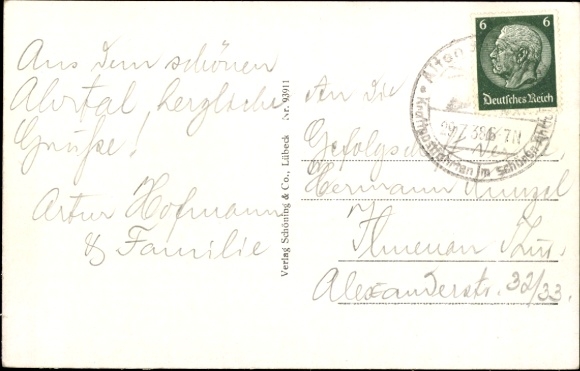 Aus dem schönen
Ahrtal, herzliche
Grüße!
Artur Hofmann
& Familie
Verlag Schöning & Co., Lübeck Nr. 93911
6 6
Deutsches Reich
Kraftpostfahrten im Schönen Ahrtal
An die
Gefolgsch
Hermann
Ilmenau Thür.
Alexanderstr. 32/33.